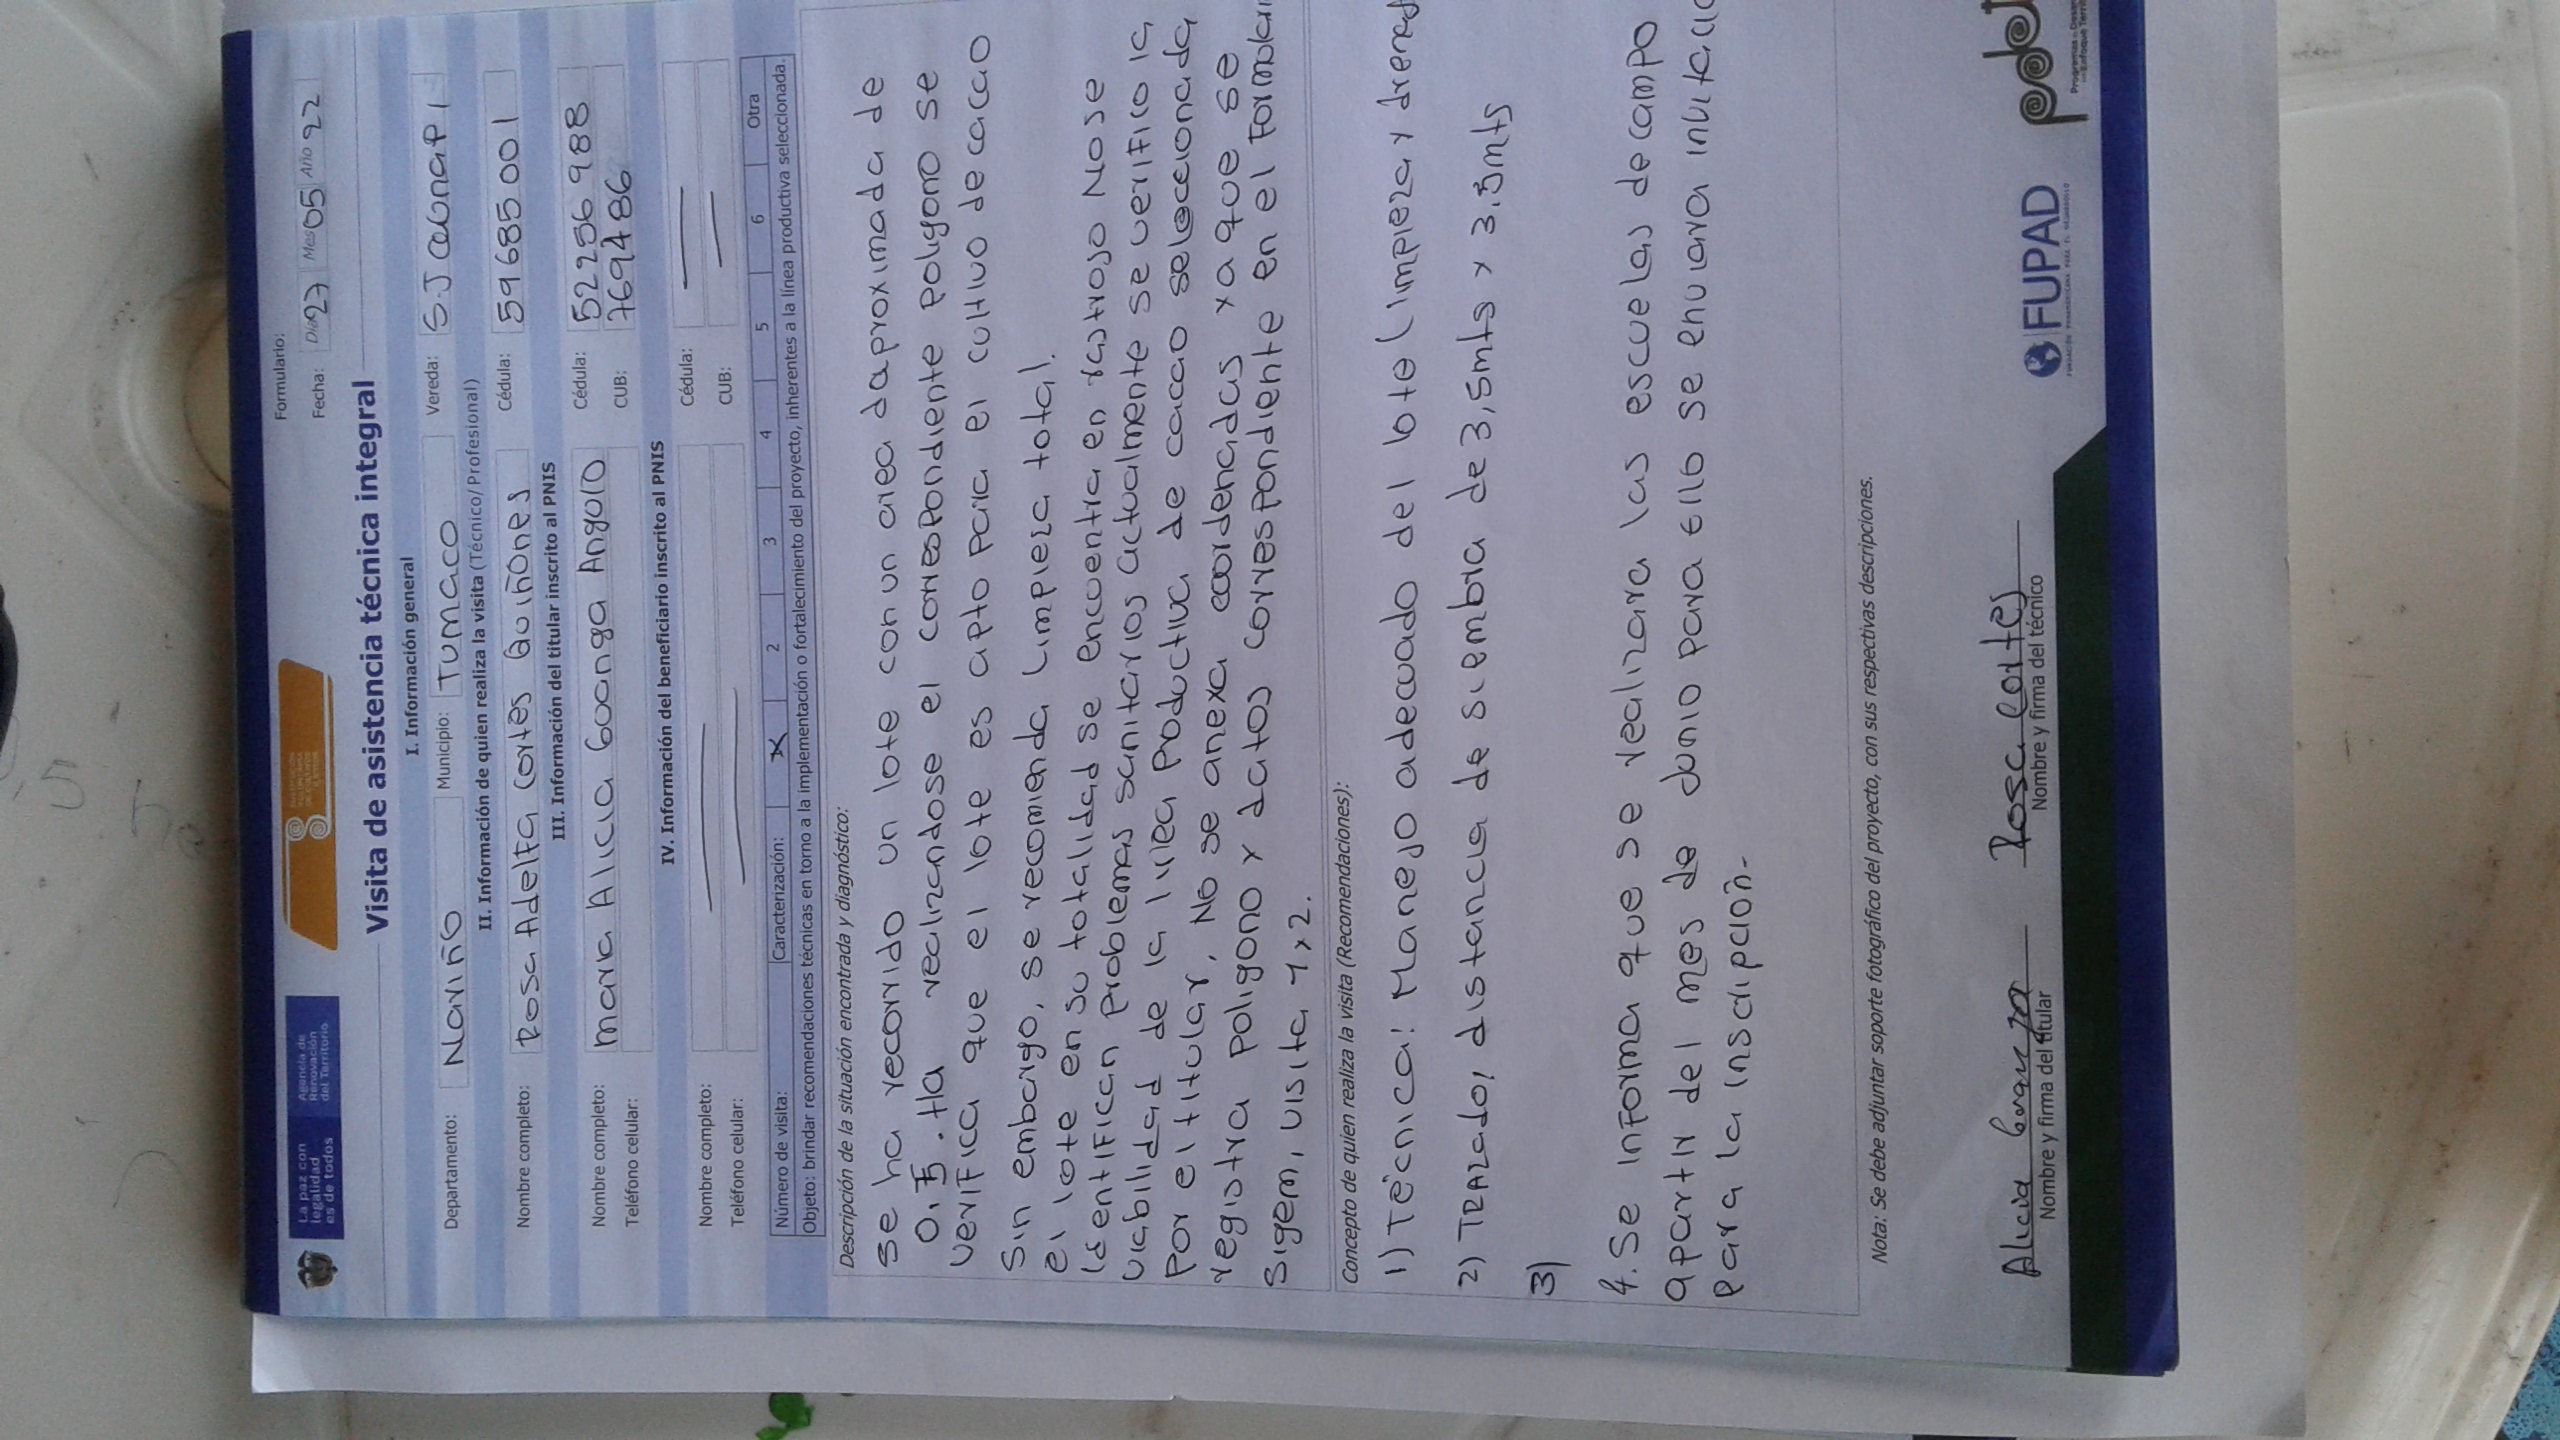 La paz con
legalidad
es de todos
Agencia de
Renovación
del Territorio
Formulario:
Fecha: Día 27 Mes 05 Año 22
Visita de asistencia técnica integral
I. Información general
Departamento: Nariño Municipio: Tumaco Vereda: S.J
II. Información de quien realiza la visita (Técnico/Profesional)
Nombre completo: Rosa Adelfa Cortes Quiñones Cédula: 59685001
III. Información del titular inscrito al PNIS
Nombre completo: Maria Alicia Goanga Angulo Cédula: 52256988
Teléfono celular: CUB: 769486
IV. Información del beneficiario inscrito al PNIS
Nombre completo: Cédula:
Teléfono celular: CUB:
Número de visita: Caracterización: X 2 3 4 5 6 Otra
Objeto: brindar recomendaciones técnicas en torno a la implementación o fortalecimiento del proyecto, inherentes a la línea productiva seleccionada.
Descripción de la situación encontrada y diagnóstico:
se ha recorrido un lote con un area daproximada de
Ha realizandose el correspondiente poligono se
verifica que el lote es apto para el cultivo de cacao
Sin embargo, se recomienda limpieza total.
el lote en su totalidad se encuentra en rastrojo No se
identifican problemas sanitarios actualmente se verifico la
viabilidad de la linea productiva de cacao seleccionada
por el titular, No se anexa coordenadas ya que se
registra poligono y datos correspondiente en el
Sigem, visita 1 y 2.
Concepto de quien realiza la visita (Recomendaciones):
1) Técnica: Manejo adecuado del lote (limpieza y
2) Trazado, distancia de siembra de 3,5mts x 3.5mts
3)
4. Se informa que se realizara las escuelas de campo
apartir del mes de Junio para ello se enviara
para la inscripcion.
Nota: Se debe adjuntar soporte fotográfico del proyecto, con sus respectivas descripciones.
Alicia Goanga
Nombre y firma del titular
Rosa Cortes
Nombre y firma del técnico
FUPAD